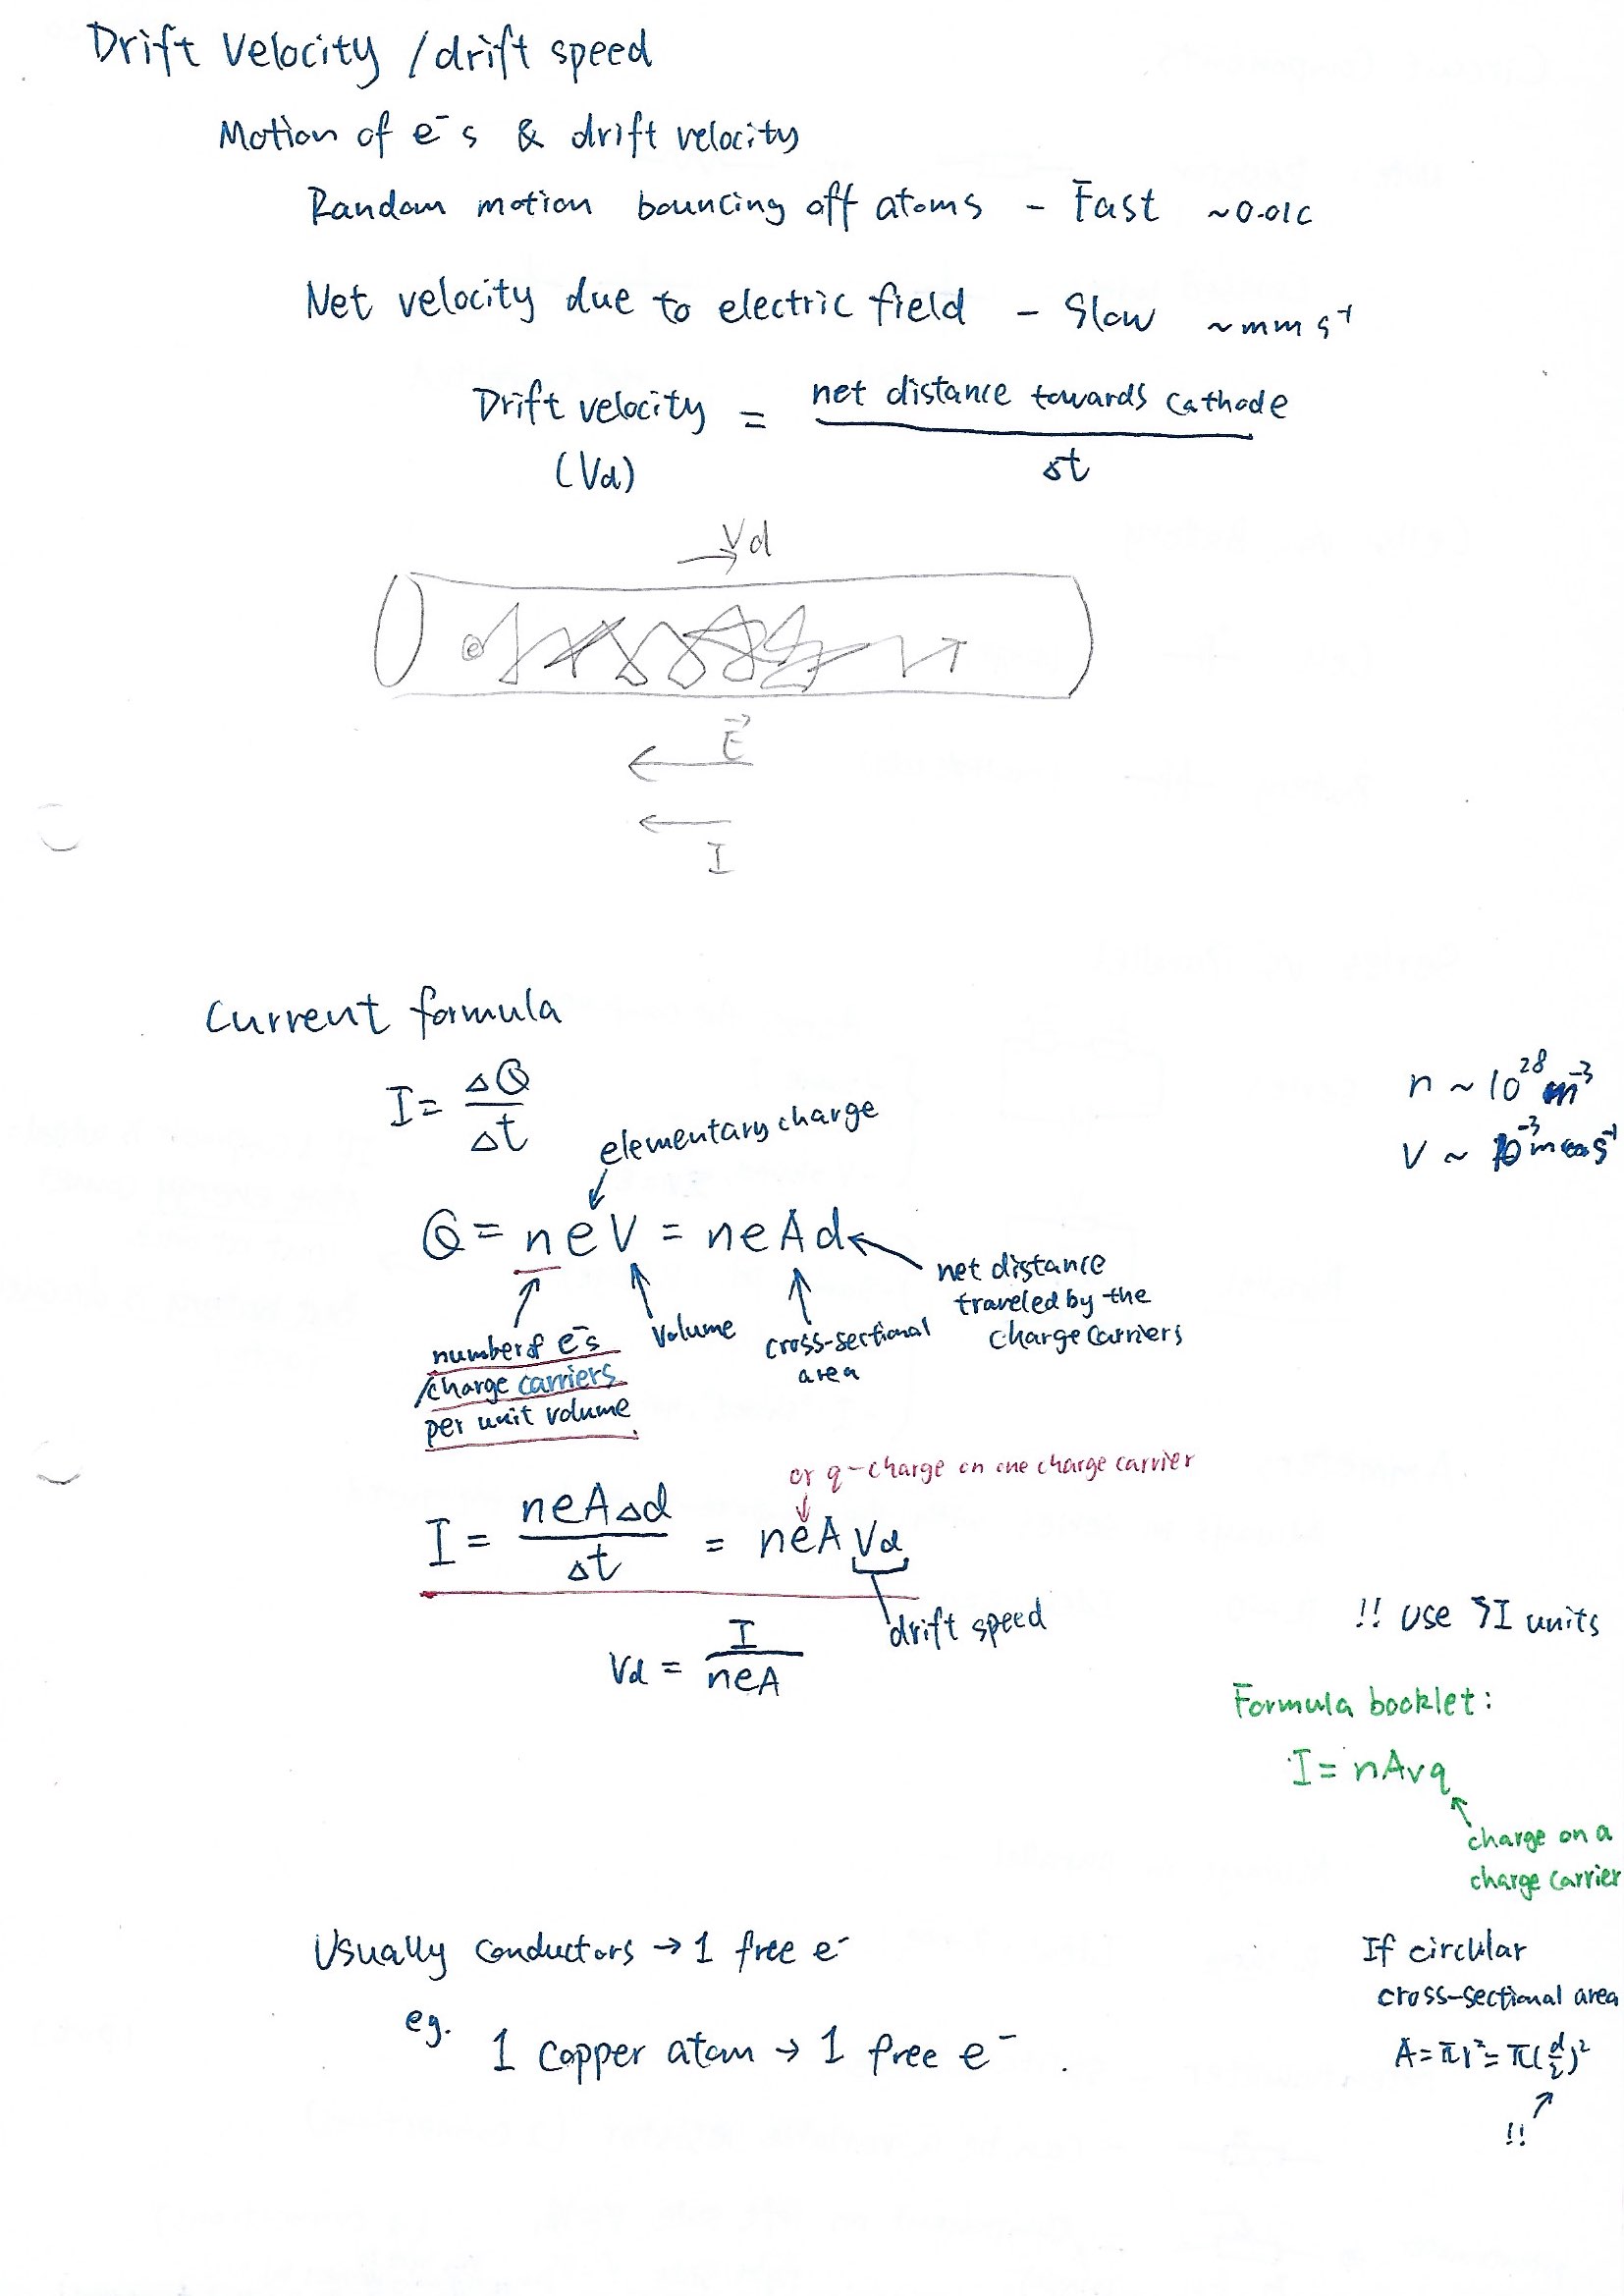 Drift Velocity / drift speed
Motion of e⁻s & drift velocity
Random motion bouncing off atoms - Fast ~0.01c
Net velocity due to electric field - Slow ~mm s⁻¹
Drift velocity = net distance towards cathode
(Vd) Δt
Vd
e
E⃗
I
Current formula
I = ΔQ
Δt
n ~ 10²⁸ m⁻³
v ~ 10⁻³ m s⁻¹
elementary charge
Q = neV = neAd
net distance
traveled by the
charge carriers
volume
cross-sectional
area
number of e⁻s
/charge carriers
per unit volume
or q - charge on one charge carrier
I = neAΔd = neAVd
Δt
drift speed
Vd = I
neA
!! use SI units
Formula booklet:
I = nAvq
charge on a
charge carrier
Usually conductors → 1 free e⁻
eg. 1 Copper atom → 1 free e⁻.
If circular
cross-sectional area
A = πr² = π(d/2)²
!!